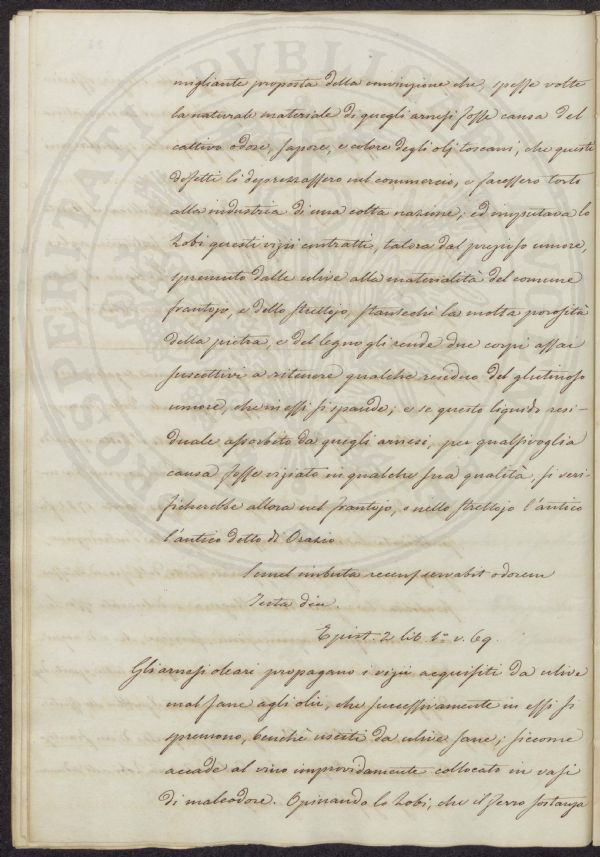 migliante proposta della convinzione che, spesse volte
la naturale materiale di quegli arnesi fosse causa del
cattivo odore, sapore, e colore degli olj toscani; che questi
difetti li deprezzassero nel commercio, e facessero torto
alla industria di una colta nazione; ed imputava lo
Zobi questi vizii contratti, talora dal pregiuso umore,
spremuto dalle ulive alla materialità del comune
frantojo, e dello strettojo, stantechè la molta porosità
della pietra, e del legno gli rende due corpi assai
suscettivi a ritenere qualche residuo del glutinoso
umore, che in essi si spande; e se questo liquido resi-
duale assorbito da quegli arnesi, per qualsivoglia
causa fosse viziato in qualche sua qualità, si veri-
ficherebbe allora nel frantojo, o nello strettojo l'antico
l'antico detto di Orazio
Semel imbuta recens servabit odorem
Testa diu.
Epist. 2 lib. 1º v. 69.
Gli arnesi oleari propagano i vizii acquisiti da ulive
mal sane agli olii, che successivamente in essi si
spremono, benchè usciti da ulive sane; siccome
accade al vino improvidamente collocato in vasi
di maleodore. Opinando lo Zobi, che il ferro sostanza
PROSPERITATI PVBLICAE